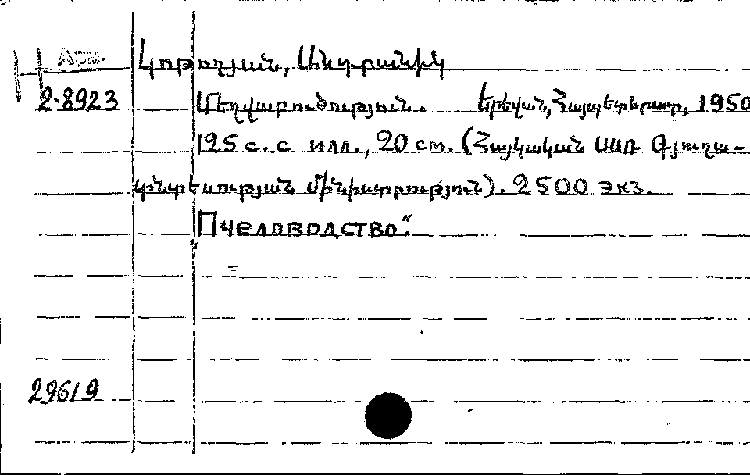 Арм.
Կոթողյան, Անդրանիկ
2-8923 Մեղվաբուծություն. Երևան, Հայպետհրատ, 1950
195 с. с илл., 20 см. (Հայկական ՍՍՌ Գյուղա-
տնտեսության մինիստրություն). 2500 экз.
Пчеловодство".
29619